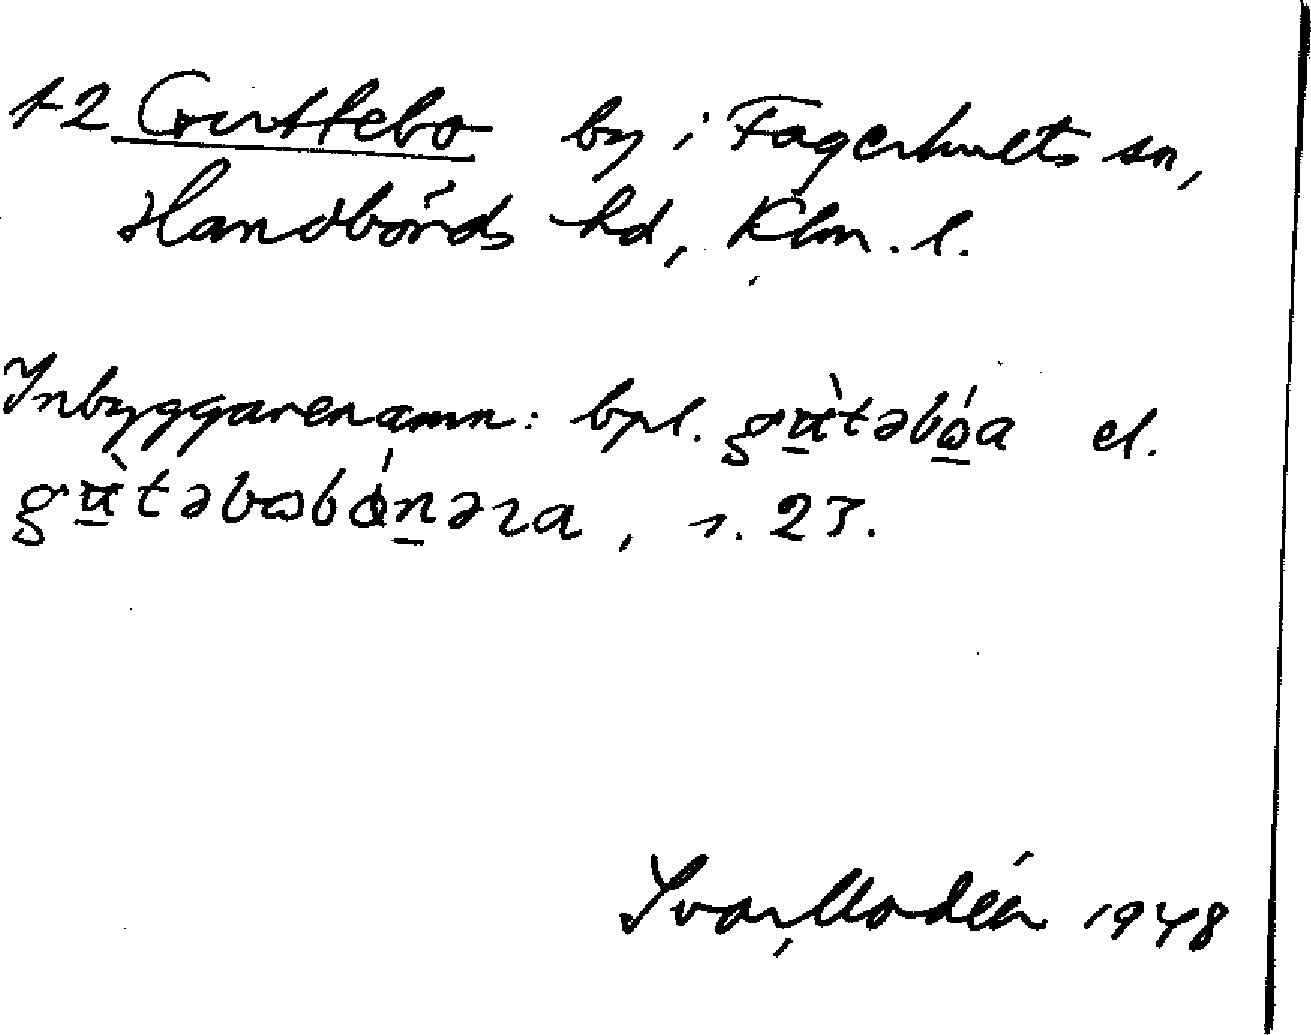 1-2 Guttebo by i Fagerhults sn,
Handbörds hd, Klm. l.
Inbyggarenamn: bpl. gù̱təbώ̱a el.
gù̱təbωbó̱nəra, s. 23.
Ivar Modéer 1948